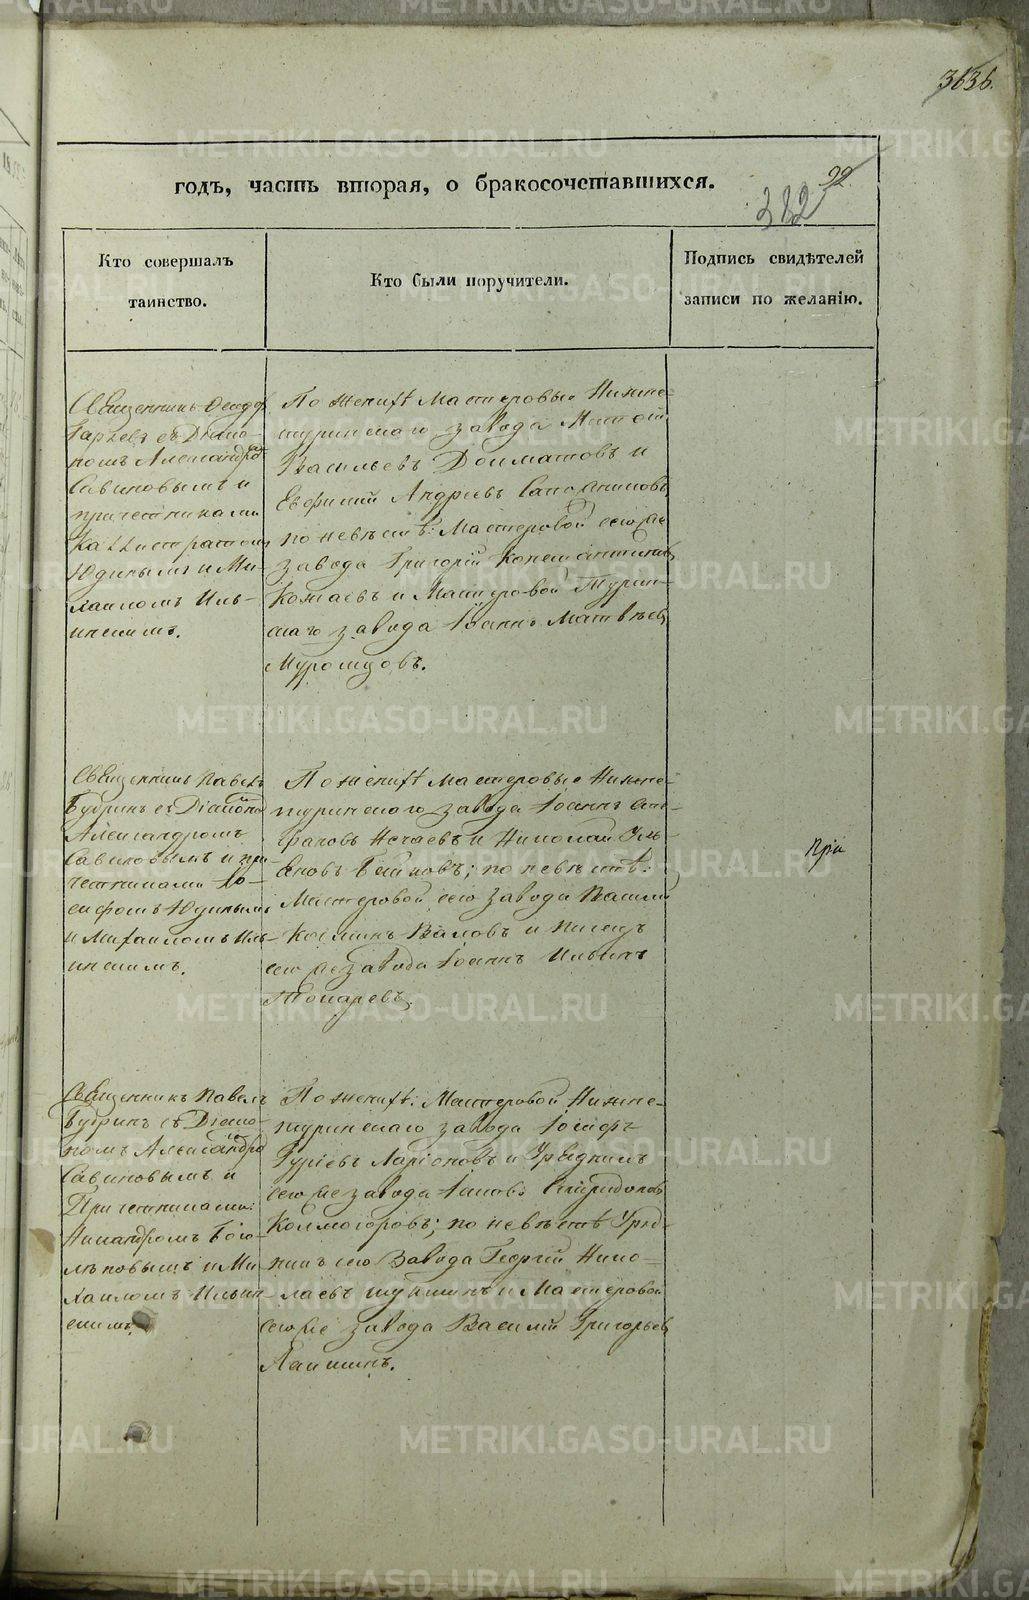 3636.
92.
382
годъ, часть вторая, о бракосочетавшихся.
Кто совершалъ
таинство.
Кто были поручители.
Подпись свидѣтелей
записи по желанію.
Священникъ Феодоръ
съ Діако-
номъ Александромъ
Савиновымъ и
причетниками
Каллистратомъ
Юдинымъ и Ми-
хаиломъ Иль-
инскимъ.
По женихѣ Мастеровые Нижне-
туринскаго завода
Васильевъ Долматовъ и
Евфимій Андреевъ
по невѣстѣ: Мастеровой сего же
завода Григорій Константиновъ
Кожаевъ и Мастеровой Турин-
скаго завода Іоаннъ Матвѣевъ
Муромцовъ.
Священникъ Павелъ
Бубринъ съ Діакономъ
Александромъ
Савиновымъ и при
четниками Іо-
сифомъ Юдинымъ
и Михаиломъ Иль-
инскимъ.
По женихѣ Мастеровые Нижне-
туринскаго завода Іоаннъ
Нечаевъ и Николай Уль-
яновъ по невѣстѣ:
Мастеровой сего завода Василій
Косминъ Валовъ и Писецъ
сего же завода Іоаннъ Ильинъ
Токаревъ.
При
Священникъ Павелъ
Бубринъ съ Діако-
номъ Александромъ
Савиновымъ и
Причетниками:
Никандромъ Бого-
лѣповымъ и Ми
хаиломъ Ильин-
скимъ.
По женихѣ: Мастеровой Нижне-
туринскаго завода Іосифъ
Гуріевъ Ларіоновъ и Урядникъ
сего же завода Іаковъ Спиридоновъ
Колмогоровъ; по невѣстѣ Уряд-
никъ сего Завода Георгій Нико-
лаевъ и Мастеровой
сего же завода Василій Григорьевъ
Лапшинъ.
METRIKI.GASO-URAL.RU